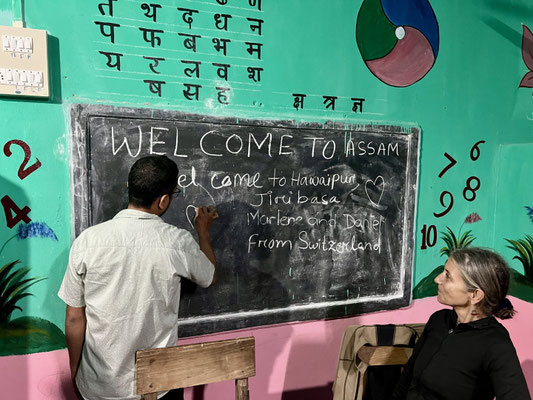 त थ द ध न
प फ ब भ म
य र ल व श
ष स ह
क्ष त्र ज्ञ
WELCOME TO ASSAM
elcome to Hawaipur
Jirubasa
Marlene and Daniel
From Switzerland
2
4
7 6
8
9
10